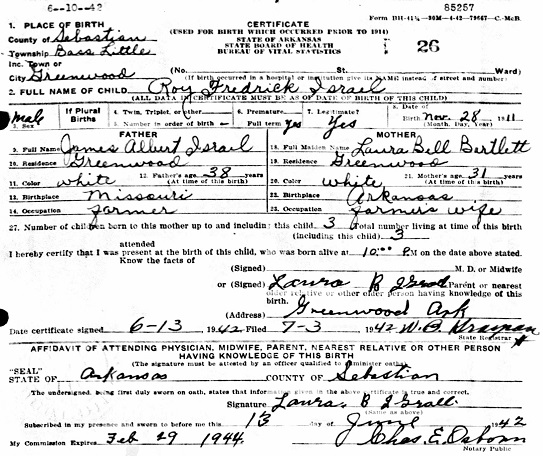 6-10-42 85257
Form BH-41¼-30M-4-42-79667-C.-McB.
1. PLACE OF BIRTH CERTIFICATE
County of Sebastian (USED FOR BIRTH WHICH OCCURRED PRIOR TO 1914)
STATE OF ARKANSAS
Township Bass Little STATE BOARD OF HEALTH
BUREAU OF VITAL STATISTICS 26
Inc. Town or
City Greenwood (No. St. Ward)
(If birth occurred in a hospital or institution give its NAME instead of street and number)
2. FULL NAME OF CHILD Roy Fredrick Israel
(ALL DATA IN CERTIFICATE MUST BE AS OF DATE OF BIRTH OF THIS CHILD)
male 3. Sex If Plural Births 4. Twin, Triplet, or other 5. Number in order of birth 6. Premature Full term Yes 7. Legitimate? Yes 8. Date of Birth Nov. 28 1911 (Month, Day, Year)
FATHER MOTHER
9. Full Name James Albert Israel 18. Full Maiden Name Laura Bill Bartlett
10. Residence Greenwood 19. Residence Greenwood
11. Color white 12. Father's age 38 years (At time of this birth) 20. Color white 21. Mother's age 31 years (At time of this birth)
13. Birthplace Missouri 22. Birthplace Arkansas
14. Occupation farmer 23. Occupation farmer's wife
27. Number of children born to this mother up to and including this child 3 Total number living at time of this birth (including this child) 3
attended
I hereby certify that I was present at the birth of this child, who was born alive at 10:00 PM on the date above stated.
Know the facts of
(Signed) M. D. or Midwife
or (Signed) Laura B Israel Parent or nearest
older relative or other older person having knowledge of this
birth.
(Address) Greenwood Ark
Date certificate signed 6-13 1942 Filed 7-3 1942 W. B.
State Registrar
AFFIDAVIT OF ATTENDING PHYSICIAN, MIDWIFE, PARENT, NEAREST RELATIVE OR OTHER PERSON
HAVING KNOWLEDGE OF THIS BIRTH
(The signature must be attested by an officer qualified to administer oath)
"SEAL"
STATE OF Arkansas COUNTY OF Sebastian
The undersigned, being first duly sworn on oath, states that information given in the above certificate is true and correct.
Signature Laura B Israel
(Same as above)
Subscribed in my presence and sworn to before me this 13 day of June 1942
My Commission Expires Feb 29 1944. Chas. E. Osborn
Notary Public